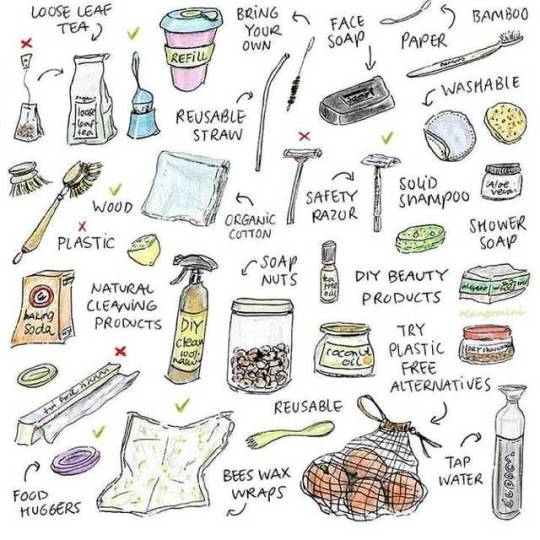 LOOSE LEAF
TEA
BRING
YOUR
OWN
FACE
SOAP
PAPER
BAMBOO
REFILL
loose
leaf
tea
REUSABLE
STRAW
WASHABLE
WOOD
PLASTIC
ORGANIC
COTTON
SAFETY
RAZOR
SOLID
SHAMPOO
Aloe
vera
SHOWER
SOAP
baking
soda
NATURAL
CLEANING
PRODUCTS
DIY
clean
100%
SOAP
NUTS
tea
tree
oil
DIY BEAUTY
PRODUCTS
coconut
oil
TRY
PLASTIC
FREE
ALTERNATIVES
REUSABLE
FOOD
HUGGERS
BEES WAX
WRAPS
TAP
WATER